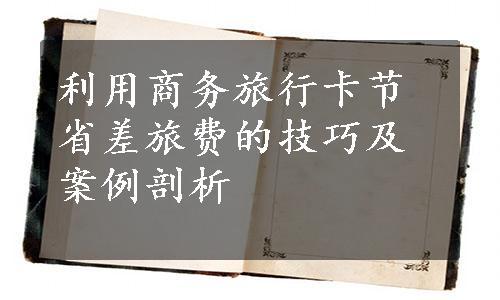 利用商务旅行卡节
省差旅费的技巧及
案例剖析